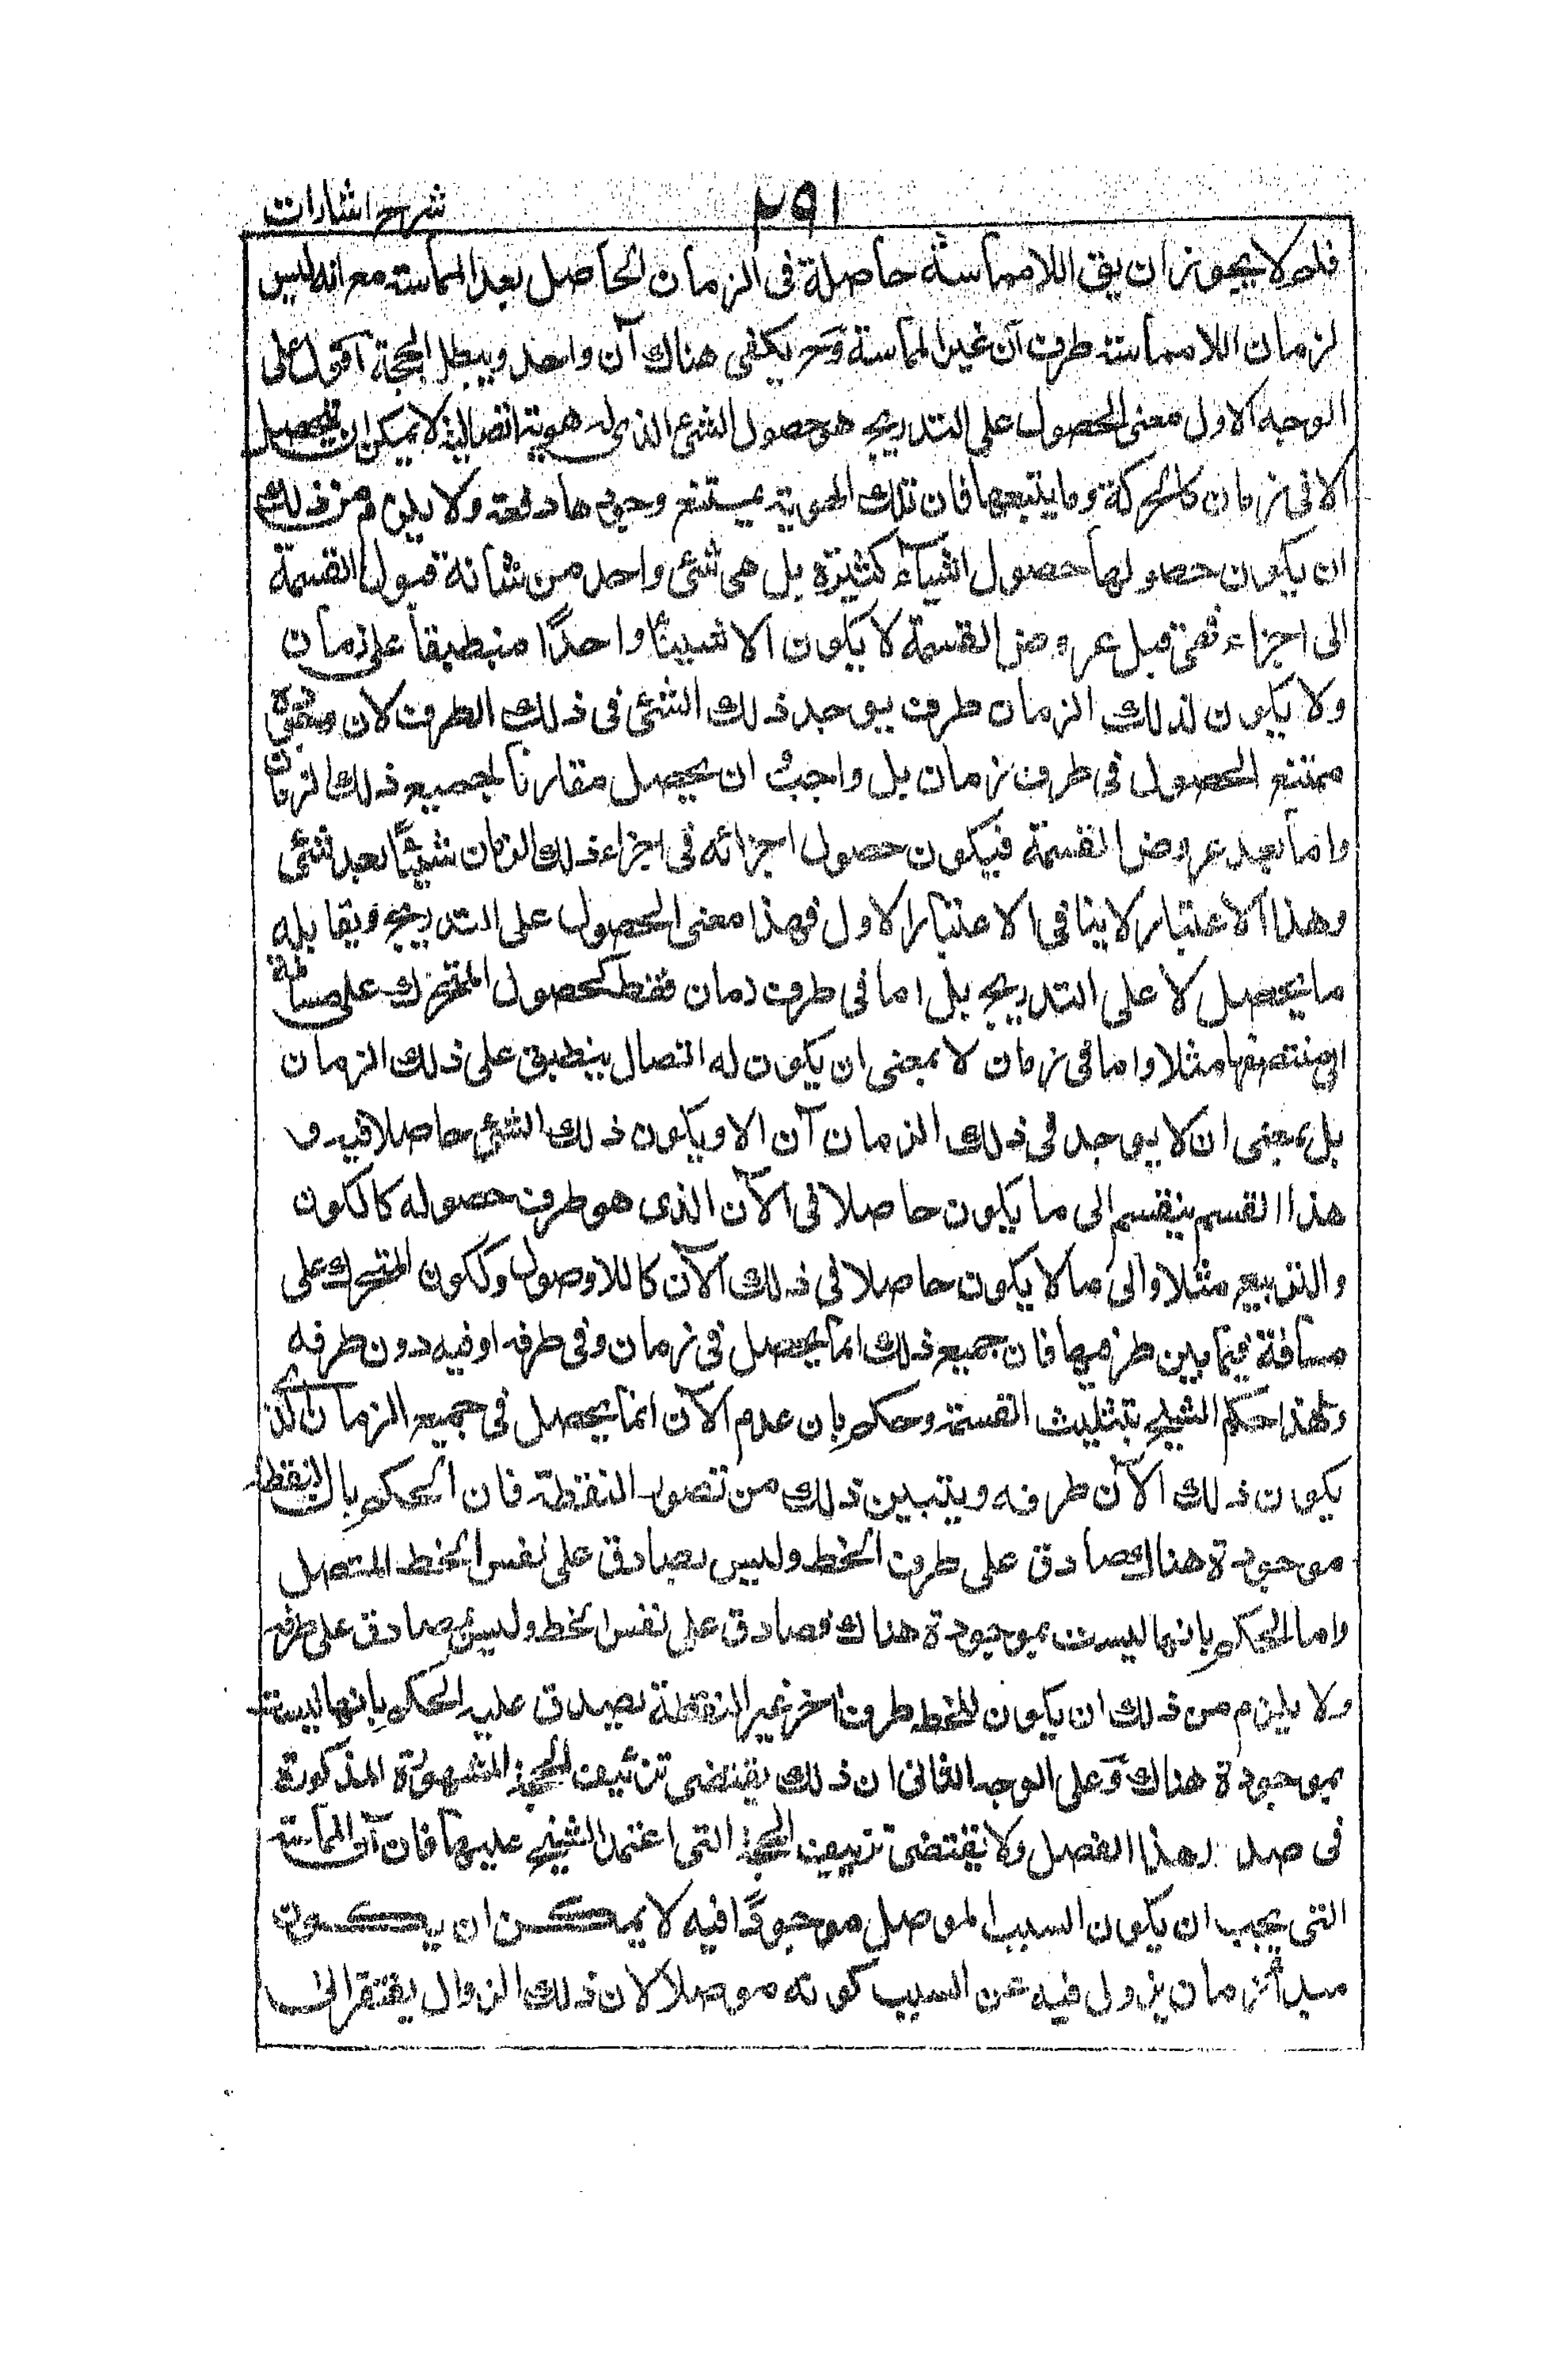 شرح اشارات ٢٩١
فلم لا يجوز ان يق اللامماسة حاصلة فى الزمان الحاصل بعد المماسة مع انه ليس
لزمان اللامماسة طرف آن غير المماسة وح يكفى هناك آن واحد ويبطل الحجة اقول على
الوجه الاول معنى الحصول على التدريج هو حصول الشئ الذى له هوية اتصالية لا يمكن ان يحصل
الا فى زمان كالحركة وما يتبعها فان تلك الهوية يمتنع وجودها دفعة ولا يلزم من ذلك
ان يكون حصولها حصول اشياء كثيرة بل هى شئ واحد من شانه قبول القسمة
الى اجزاء فهى قبل عروض القسمة لا يكون الا شيئا واحدًا منطبقا على زمان
ولا يكون لذلك الزمان طرف يوجد ذلك الشئ فى ذلك الطرف لان وجوده
ممتنع الحصول فى طرف زمان بل واجب ان يحصل مقارنا لجميع ذلك الزمان
واما بعد عروض القسمة فيكون حصول اجزائه فى اجزاء ذلك الزمان شيئًا بعد شئ
وهذا الاعتبار لا ينافى الاعتبار الاول فهذا معنى الحصول على التدريج ويقابله
ما يحصل لا على التدريج بل اما فى طرف زمان فقط كحصول المتحرك على مسافة
الى منتصفها مثلا واما فى زمان لا بمعنى ان يكون له اتصال ينطبق على ذلك الزمان
بل بمعنى ان لا يوجد فى ذلك الزمان آن الا ويكون ذلك الشئ حاصلا فيه و
هذا القسم ينقسم الى ما يكون حاصلا فى الآن الذى هو طرف حصوله كالكون
والتربيع مثلا والى ما لا يكون حاصلا فى ذلك الآن كاللاوصول وككون المتحرك على
مسافة فيما بين طرفيها فان جميع ذلك انما يحصل فى زمان وفى طرفه او فيه دون طرفه
ولهذا حكم الشيخ بتثليث القسمة وحكم بان عدم الآن انما يحصل فى جميع الزمان الذى
يكون ذلك الآن طرفه ويتبين ذلك من تصور النقطة فان الحكم بان النقطة
موجودة هناك صادق على طرف الخط وليس بصادق على نفس الخط المتصل
واما الحكم بانها ليست بموجودة هناك فصادق على نفس الخط وليس بصادق على طرفه
ولا يلزم من ذلك ان يكون للخط طرف اخر غير النقطة يصدق عليه الحكم بانها ليست
بموجودة هناك وعلى الوجه الثانى ان ذلك يقتضى تزييف الحجة المشهورة المذكورة
فى صدر هذا الفصل ولا يقتضى تزييف الحجة التى اعتمد الشيخ عليها فان آن المماسة
التى يجب ان يكون السبب الموصل موجودًا فيه لا يمكن ان يكون
مبدأ زمان يزول فيه عن السبب كونه موصلا لان ذلك الزوال يفتقر الى